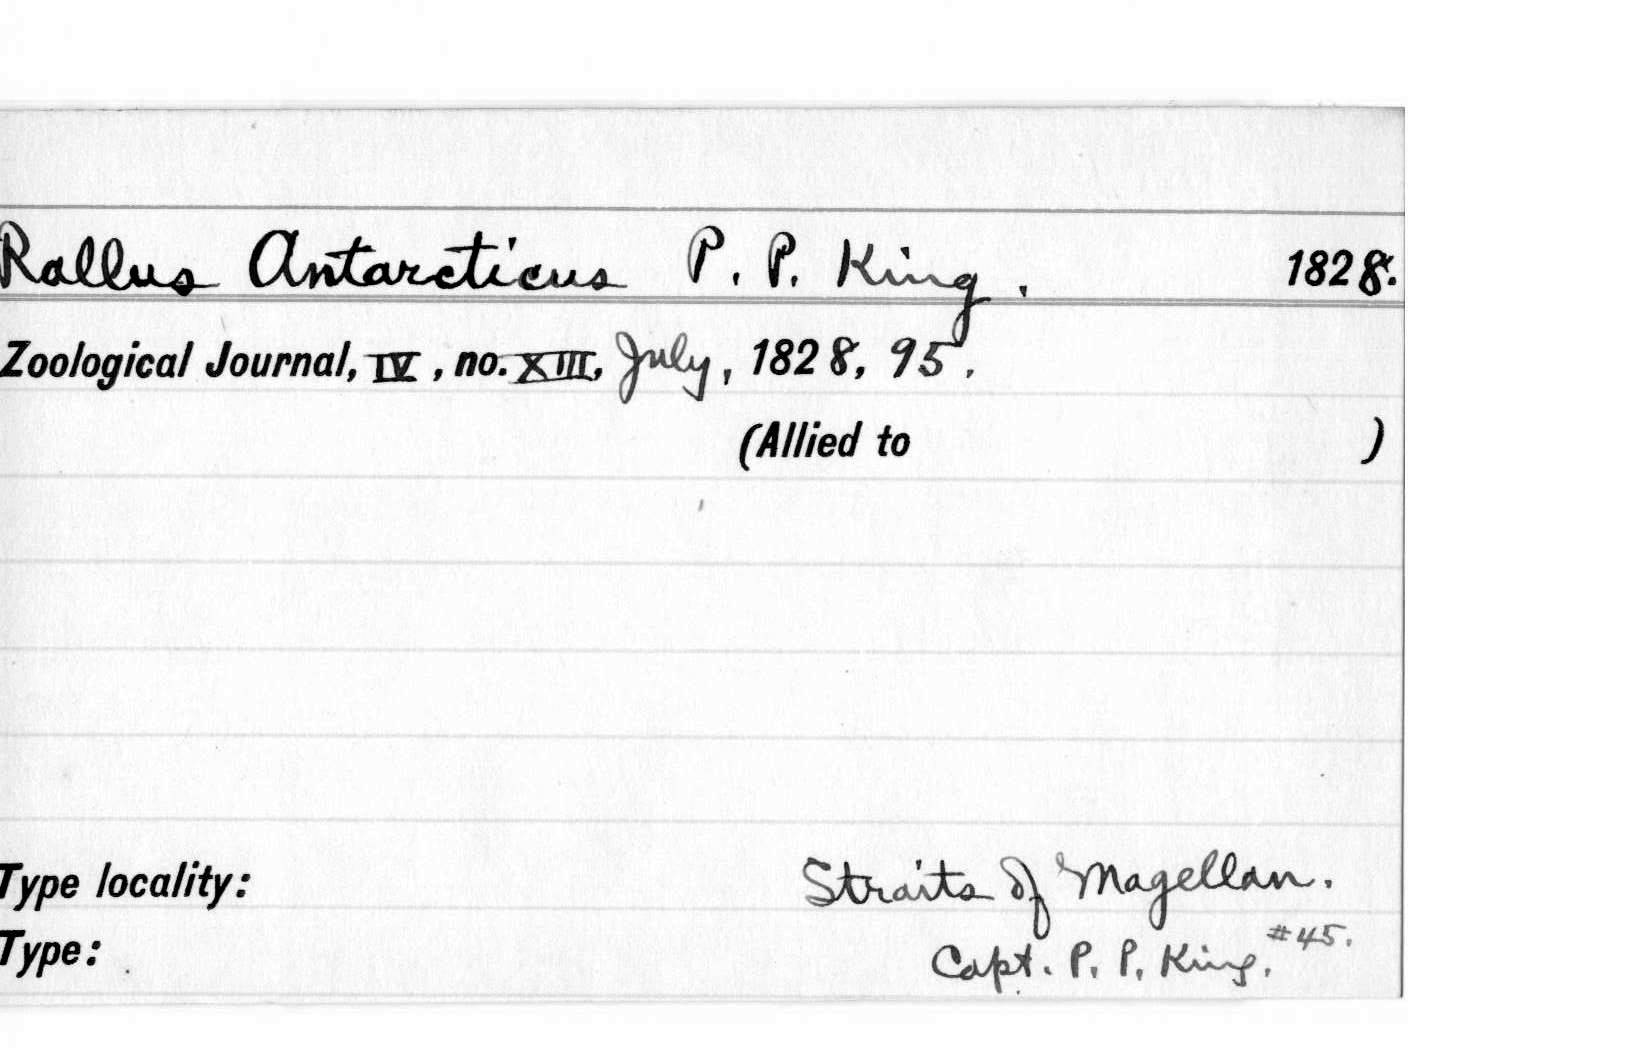 Rallus Antarcticus P. P. King. 1828.
Zoological Journal, IV, no. XIII, July, 1828, 95.
(Allied to )
Type locality: Straits of Magellan.
Type: Capt. P. P. King. #45.